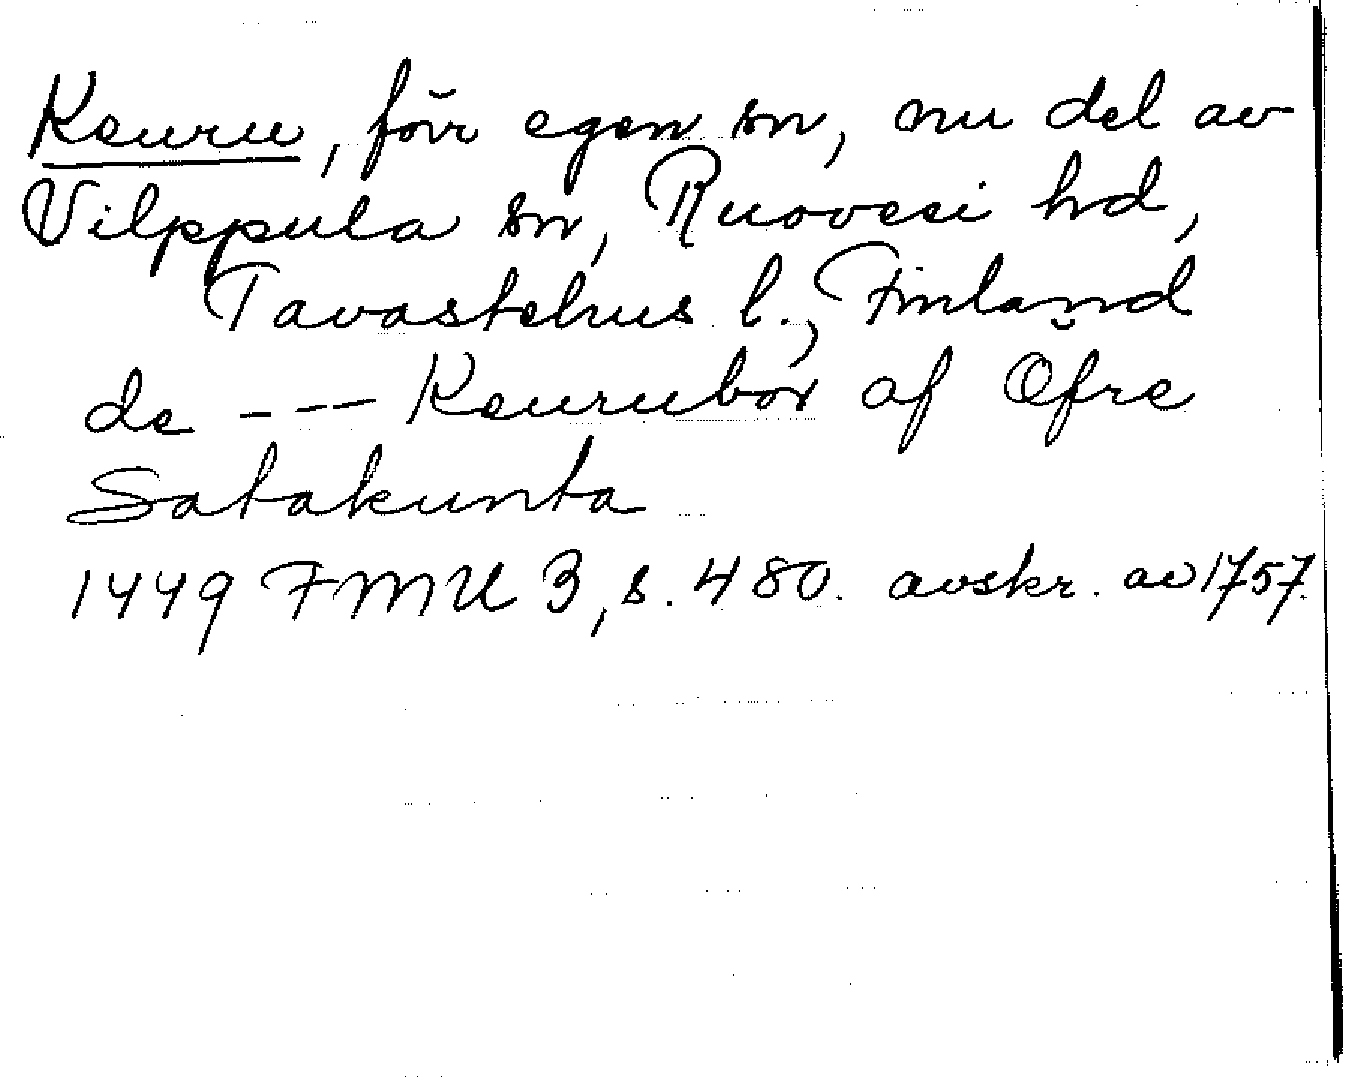 Keuru, förr egen sn, nu del av
Vilppula sn, Ruovesi hd,
Tavastehus l., Finland
de --- Keurubor af Öfre
Satakunta
1449 FMU 3, s. 480. avskr. av 1757.